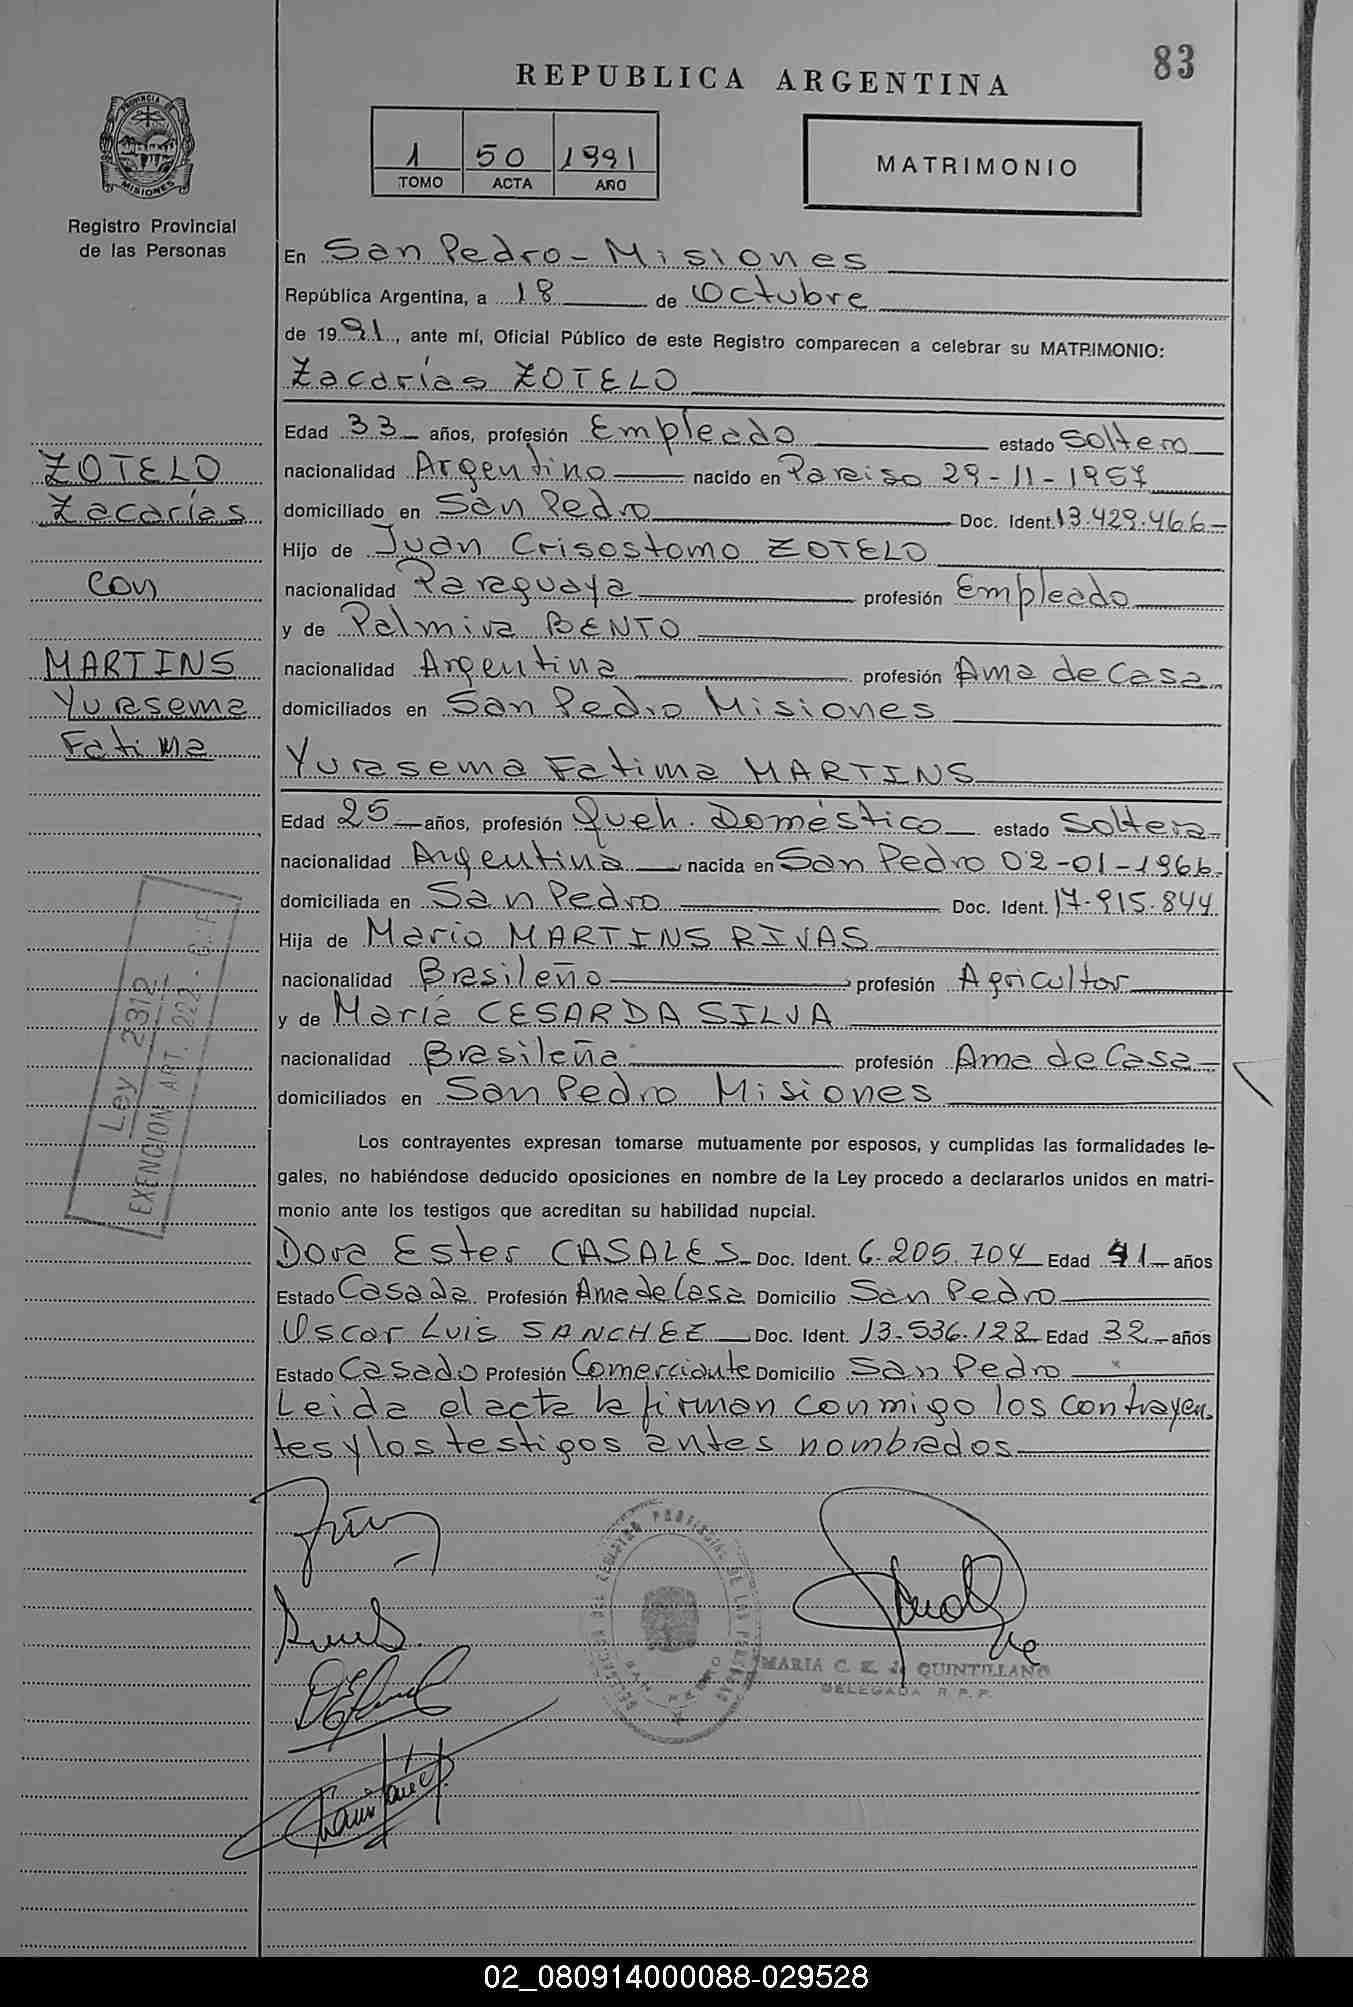 83
REPUBLICA ARGENTINA
PROVINCIA DE
MISIONES
Registro Provincial
de las Personas
1 50 1991
TOMO ACTA AÑO
MATRIMONIO
En San Pedro - Misiones
República Argentina, a 18 de Octubre
de 1991, ante mí, Oficial Público de este Registro comparecen a celebrar su MATRIMONIO:
Zacarías ZOTELO
Edad 33 años, profesión Empleado estado Soltero
nacionalidad Argentino nacido en Paraiso 29-11-1957
domiciliado en San Pedro Doc. Ident. 13.429.466
Hijo de Juan Crisostomo ZOTELO
nacionalidad Paraguaya profesión Empleado
y de Palmira BENTO
nacionalidad Argentina profesión Ama de Casa
domiciliados en San Pedro Misiones
Yurasema Fatima MARTINS
Edad 25 años, profesión Queh. Doméstico estado Soltera
nacionalidad Argentina nacida en San Pedro 02-01-1966
domiciliada en San Pedro Doc. Ident. 17.915.844
Hija de Mario MARTINS RIVAS
nacionalidad Brasileño profesión Agricultor
y de María CESAR DA SILVA
nacionalidad Brasileña profesión Ama de Casa
domiciliados en San Pedro Misiones
Los contrayentes expresan tomarse mutuamente por esposos, y cumplidas las formalidades le-
gales, no habiéndose deducido oposiciones en nombre de la Ley procedo a declararlos unidos en matri-
monio ante los testigos que acreditan su habilidad nupcial.
Dora Ester CASALES Doc. Ident. 6.205.704 Edad 41 años
Estado Casada Profesión Ama de Casa Domicilio San Pedro
Oscar Luis SANCHEZ Doc. Ident. 13.536.128 Edad 32 años
Estado Casado Profesión Comerciante Domicilio San Pedro
Leida el acta la firman conmigo los contrayen-
tes y los testigos antes nombrados
ZOTELO
Zacarías
con
MARTINS
Yurasema
Fatima
Ley 2312
EXENCION ART. 222 - C.F
DELEGACION DEL REGISTRO PROVINCIAL DE LAS PERSONAS
SAN PEDRO
MARIA C. K. de QUINTILLANO
DELEGADA R.P.P.
02_080914000088-029528